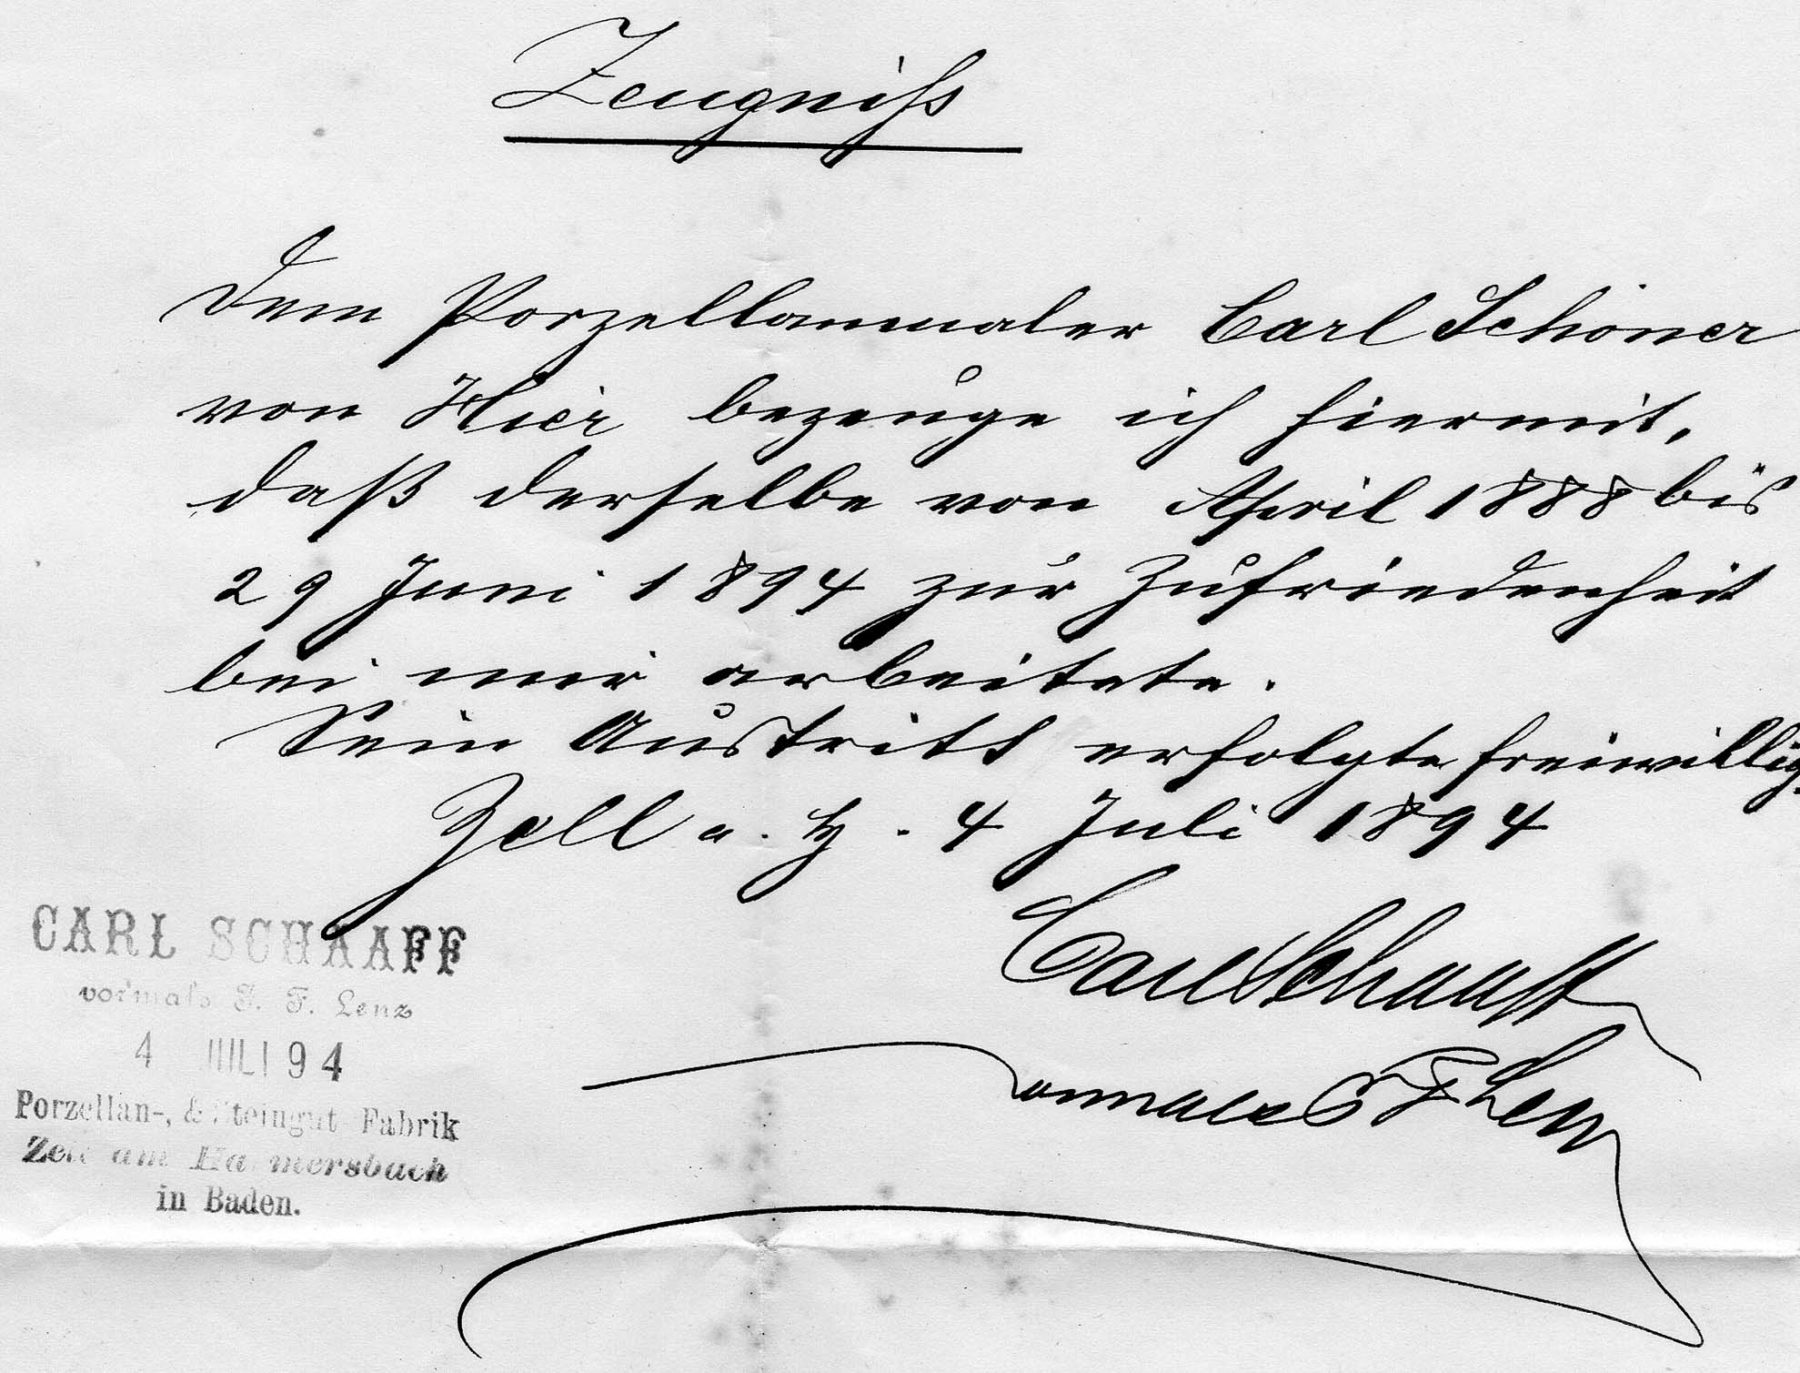 Zeugniß
Dem Porzellanmaler Carl Schöner
von Hier bezeuge ich hiermit,
daß derselbe von April 1888 bis
29 Juni 1894 zur Zufriedenheit
bei mir arbeitete.
Sein Austritt erfolgte freiwillig.
Zell a. H. 4 Juli 1894
Carl Schaaff
vormals J F Lenz
CARL SCHAAFF
vormals J. F. Lenz
4 JULI 94
Porzellan-, & Steingut Fabrik
Zell am Harmersbach
in Baden.